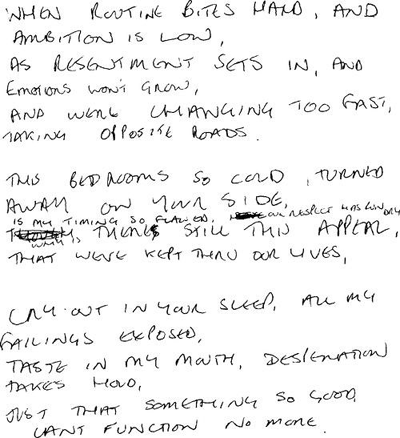 WHEN ROUTINE BITES HARD, AND
AMBITION IS LOW,
AS RESENTMENT SETS IN, AND
EMOTIONS WON'T GROW,
AND WERE CHANGING TOO FAST,
TAKING OPPOSITE ROADS.
THIS BEDROOMS SO COLD, TURNED
AWAY ON YOUR SIDE,
IS MY TIMING SO FLAWED, OUR RESPECT HAS RUN DRY
WHY IS THERE STILL THIS APPEAL,
THAT WE'VE KEPT THRU OUR LIVES,
CRY OUT IN YOUR SLEEP, ALL MY
FAILINGS EXPOSED,
TASTE IN MY MOUTH, DESPERATION
TAKES HOLD,
JUST THAT SOMETHING SO GOOD
CANT FUNCTION NO MORE.